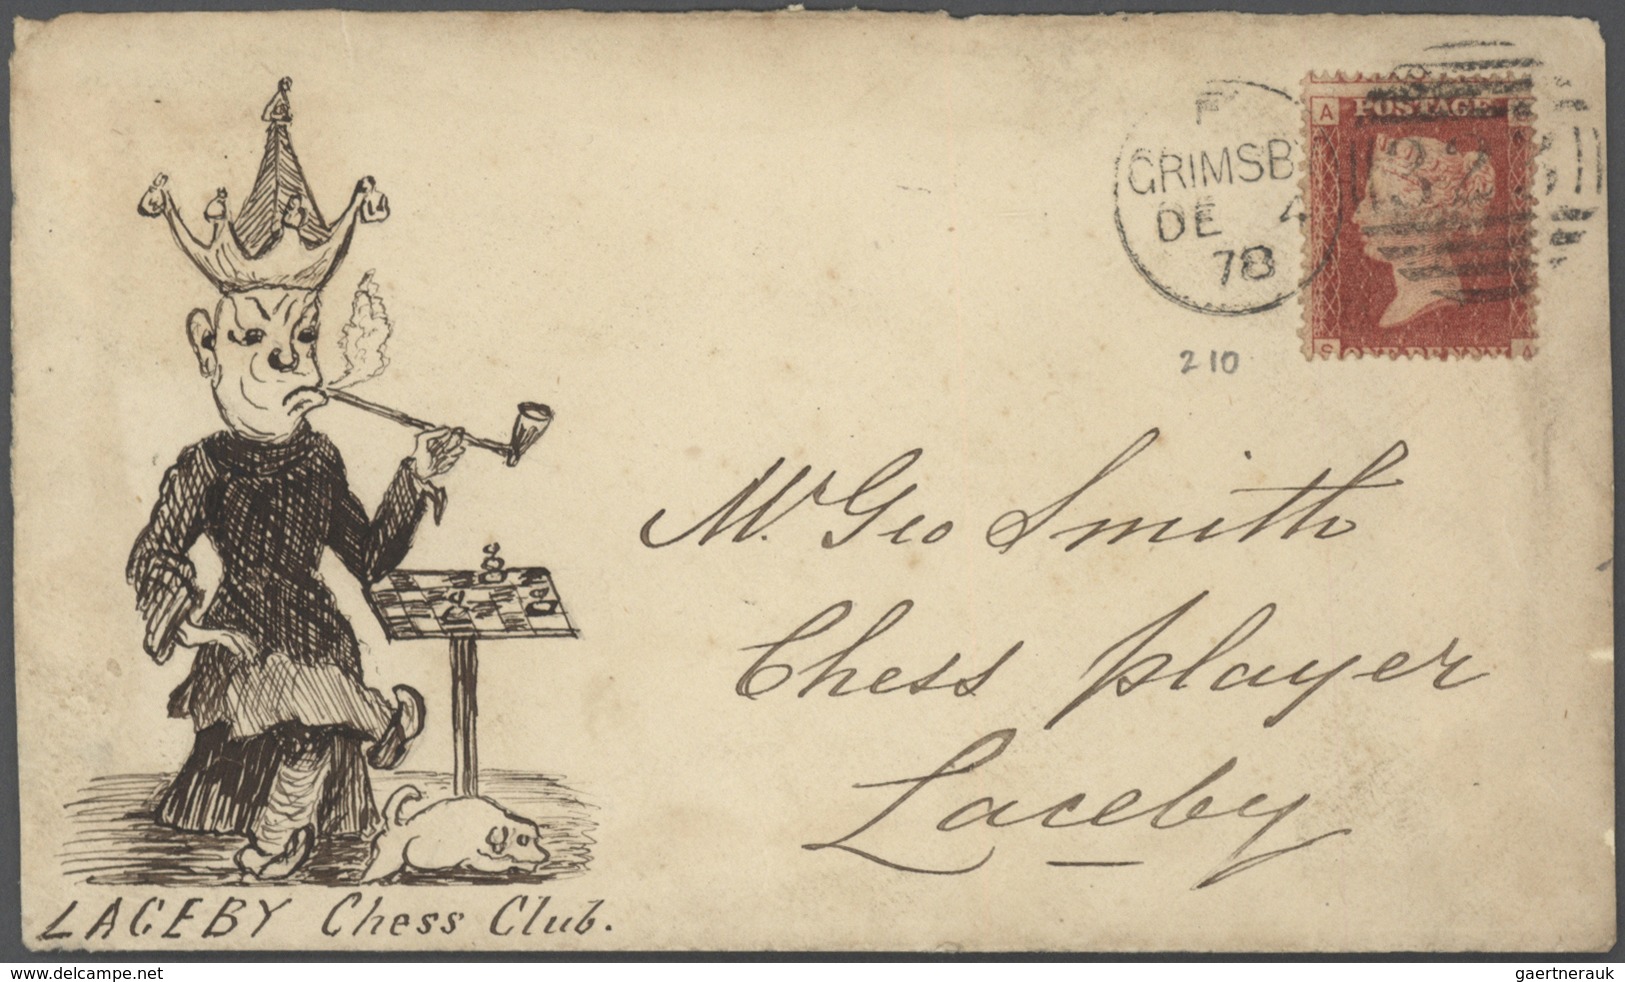 F
GRIMSBY
DE 4
78
POSTAGE
A
210
Mr. Geo Smith
Chess player
Laceby
LACEBY Chess Club.
www.delcampe.net
gaertnerauk